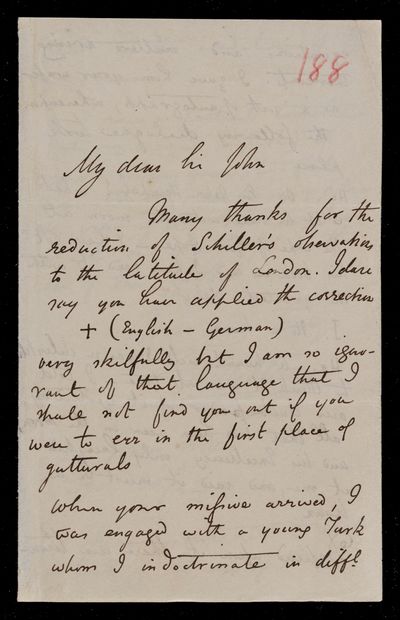 188
My dear Sir John
Many thanks for the
reduction of Schiller's observations
to the latitude of London. I dare
say you have applied the correction
+ (English – German)
very skilfully but I am so igno-
rant of that language that I
shall not find you out if you
were to err in the first place of
gutturals
When your missive arrived, I
was engaged with a young Turk
whom I indoctrinate in diffl